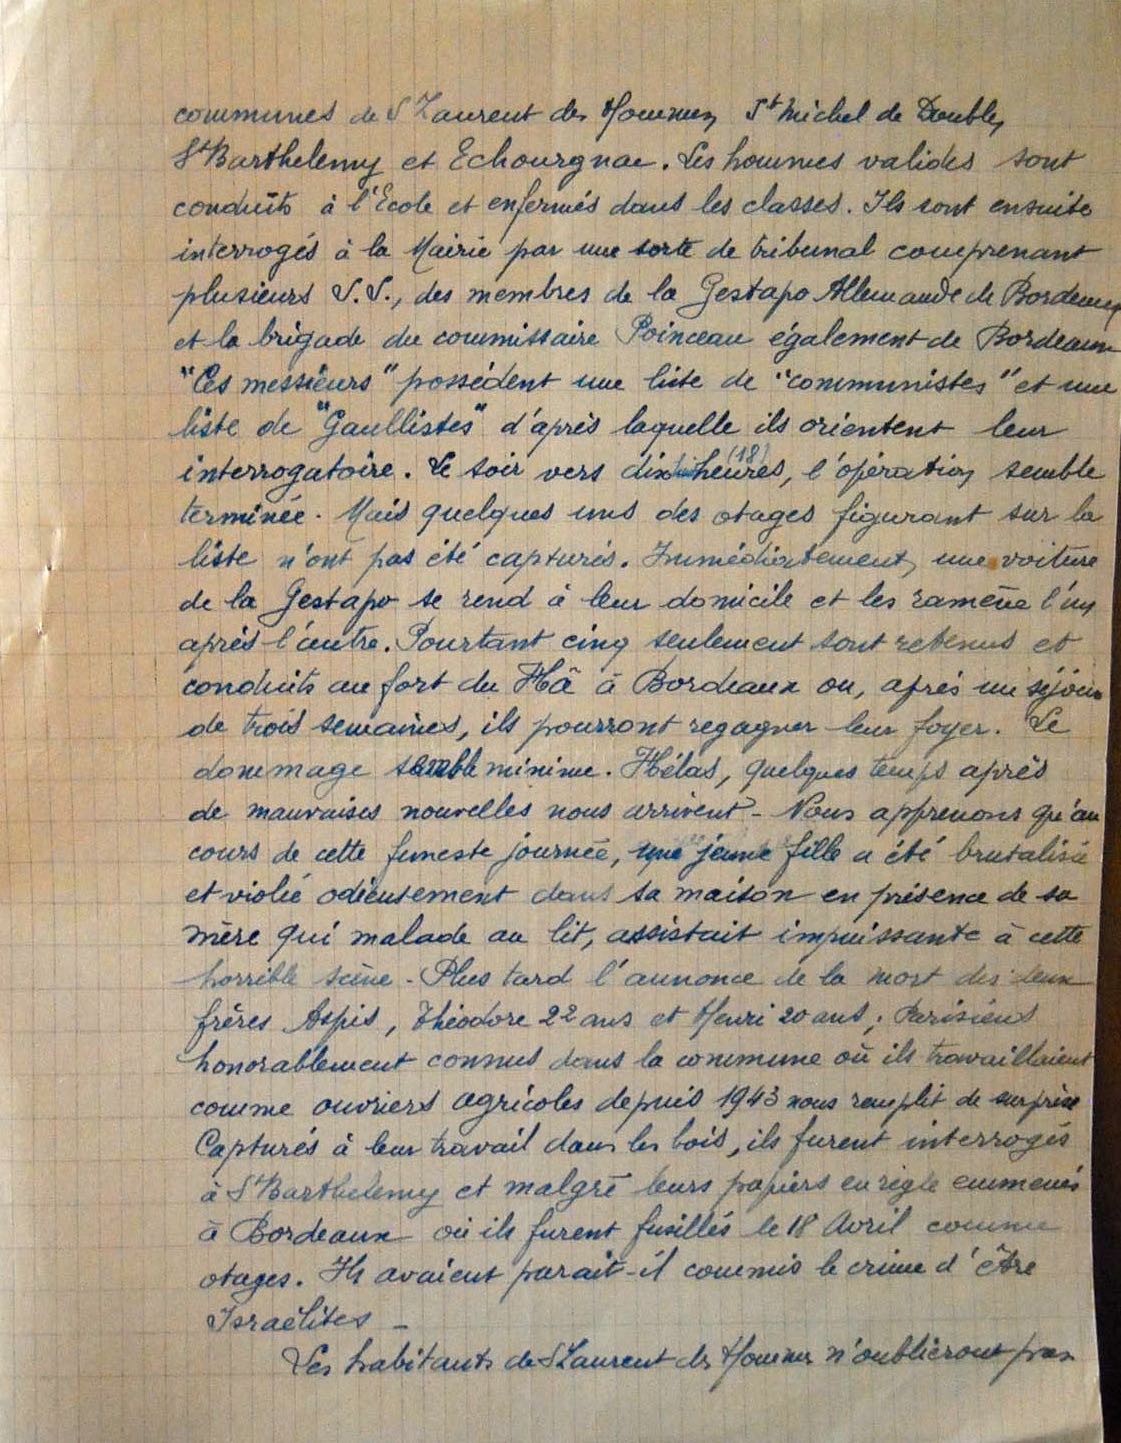 communes de St Laurent des Hommes, St Michel de Double,
St Barthelemy et Echourgnac. Les hommes valides sont
conduits à l'Ecole et enfermés dans les classes. Ils sont ensuite
interrogés à la Mairie par une sorte de tribunal comprenant
plusieurs S.S., des membres de la Gestapo Allemande de Bordeaux
et la brigade du commissaire Poinceau également de Bordeaux
"Ces messieurs" possédent une liste de "communistes" et une
liste de "Gaullistes" d'après laquelle ils orientent leur
interrogatoire. Le soir vers dix huit heures (18), l'opération semble
terminée. Mais quelques uns des otages figurant sur la
liste n'ont pas été capturés. Immédiatement, une voiture
de la Gestapo se rend à leur domicile et les ramène l'un
après l'autre. Pourtant cinq seulement sont retenus et
conduits au fort du Hâ à Bordeaux ou, après un séjour
de trois semaines, ils pourront regagner leur foyer. Le
dommage semble minime. Hélas, quelques temps après
de mauvaises nouvelles nous arrivent - Nous apprenons qu'au
cours de cette funeste journée, une jeune fille a été brutalisée
et violée odieusement dans sa maison en présence de sa
mère qui malade au lit, assistait impuissante à cette
horrible scène - Plus tard l'annonce de la mort des deux
frères Aspis, Théodore 22 ans et Henri 20 ans ; Parisiens
honorablement connus dans la commune où ils travaillaient
comme ouvriers agricoles depuis 1943 nous remplit de surprise
Capturés à leur travail dans les bois, ils furent interrogés
à St Barthelemy et malgré leurs papiers en règle emmenés
à Bordeaux où ils furent fusillés le 18 Avril comme
otages. Ils avaient parait-il commis le crime d'être
Israélites -
Les habitants de St Laurent des Hommes n'oublieront pas